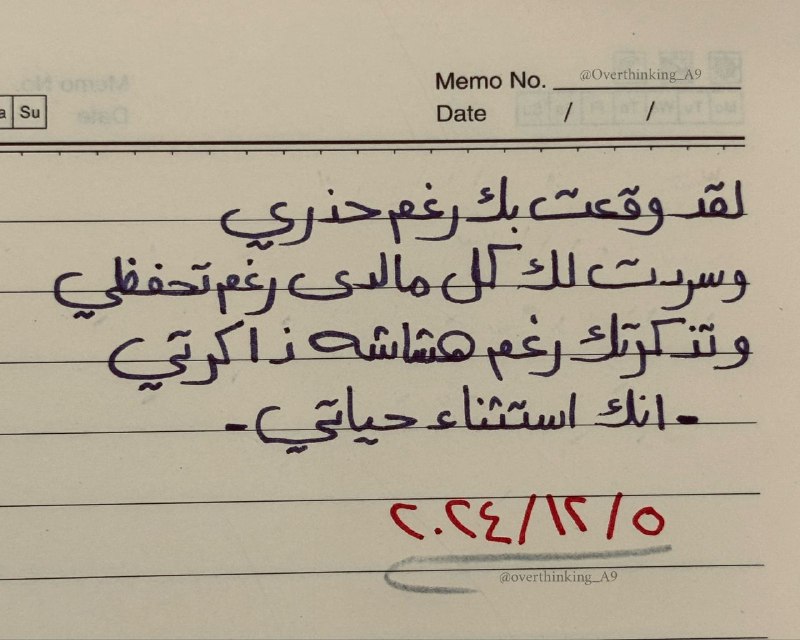 Memo No. @Overthinking_A9
Date / /
a Su
لقد وقعت بك رغم حذري
وسردت لك كل مالدى رغم تحفظي
وتذكرتك رغم هشاشه ذاكرتي
- انك استثناء حياتي -
٢٠٢٤/١٢/٥
@overthinking_A9